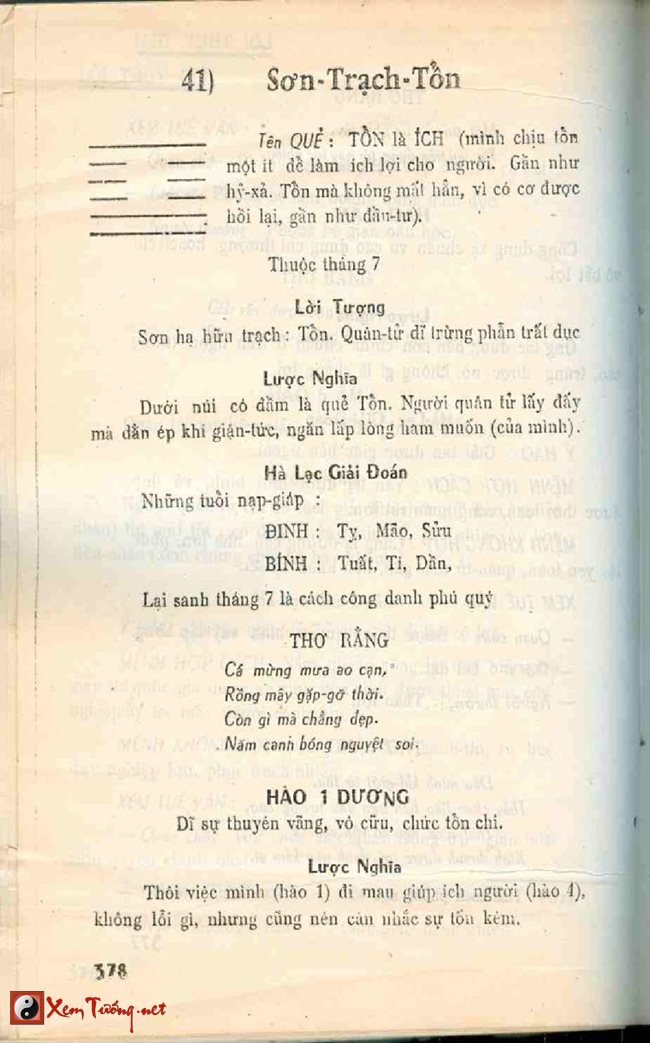 41) Sơn-Trạch-Tồn
Tên QUẺ : TỒN là ÍCH (mình chịu tồn
một ít để làm ích lợi cho người. Gần như
hỷ-xả. Tồn mà không mất hẳn, vì có cơ được
hồi lại, gần như đầu-tư).
Thuộc tháng 7
Lời Tượng
Sơn hạ hữu trạch : Tồn. Quân-tử dĩ trừng phẫn trất dục
Lược Nghĩa
Dưới núi có đầm là quẻ Tồn. Người quân tử lấy đấy
mà dằn ép khí giận-tức, ngăn lấp lòng ham muốn (của mình).
Hà Lạc Giải Đoán
Những tuổi nạp-giáp :
ĐINH : Tỵ, Mão, Sửu
BÍNH : Tuất, Tí, Dần,
Lại sanh tháng 7 là cách công danh phú quý
THƠ RẰNG
Cá mừng mưa ao cạn,
Rồng mây gặp-gỡ thời.
Còn gì mà chẳng đẹp.
Năm canh bóng nguyệt soi.
HÀO 1 DƯƠNG
Dĩ sự thuyên vãng, vô cữu, chước tồn chi.
Lược Nghĩa
Thôi việc mình (hào 1) đi mau giúp ích người (hào 4),
không lỗi gì, nhưng cũng nên cân nhắc sự tốn kém.
378
XemTướng.net